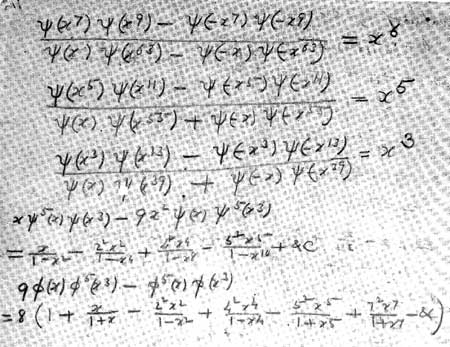 ψ(x⁷) ψ(x⁹) − ψ(−x⁷) ψ(−x⁹)
ψ(x) ψ(x⁶³) − ψ(−x) ψ(−x⁶³) = x⁶
ψ(x⁵) ψ(x¹¹) − ψ(−x⁵) ψ(−x¹¹)
ψ(x) ψ(x⁵⁵) + ψ(−x) ψ(−x⁵⁵) = x⁵
ψ(x³) ψ(x¹³) − ψ(−x³) ψ(−x¹³)
ψ(x) ψ(x³⁹) + ψ(−x) ψ(−x³⁹) = x³
x ψ⁵(x) ψ(x³) − 9x² ψ(x) ψ⁵(x³)
= x/(1−x²) − 2²x²/(1−x⁴) + 4²x⁴/(1−x⁸) − 5²x⁵/(1−x¹⁰) + &c
9 φ(x) φ⁵(x³) − φ⁵(x) φ(x³)
= 8 (1 + x/(1+x) − 2²x²/(1−x²) + 4²x⁴/(1−x⁴) − 5²x⁵/(1+x⁵) + 7²x⁷/(1+x⁷) − &c)